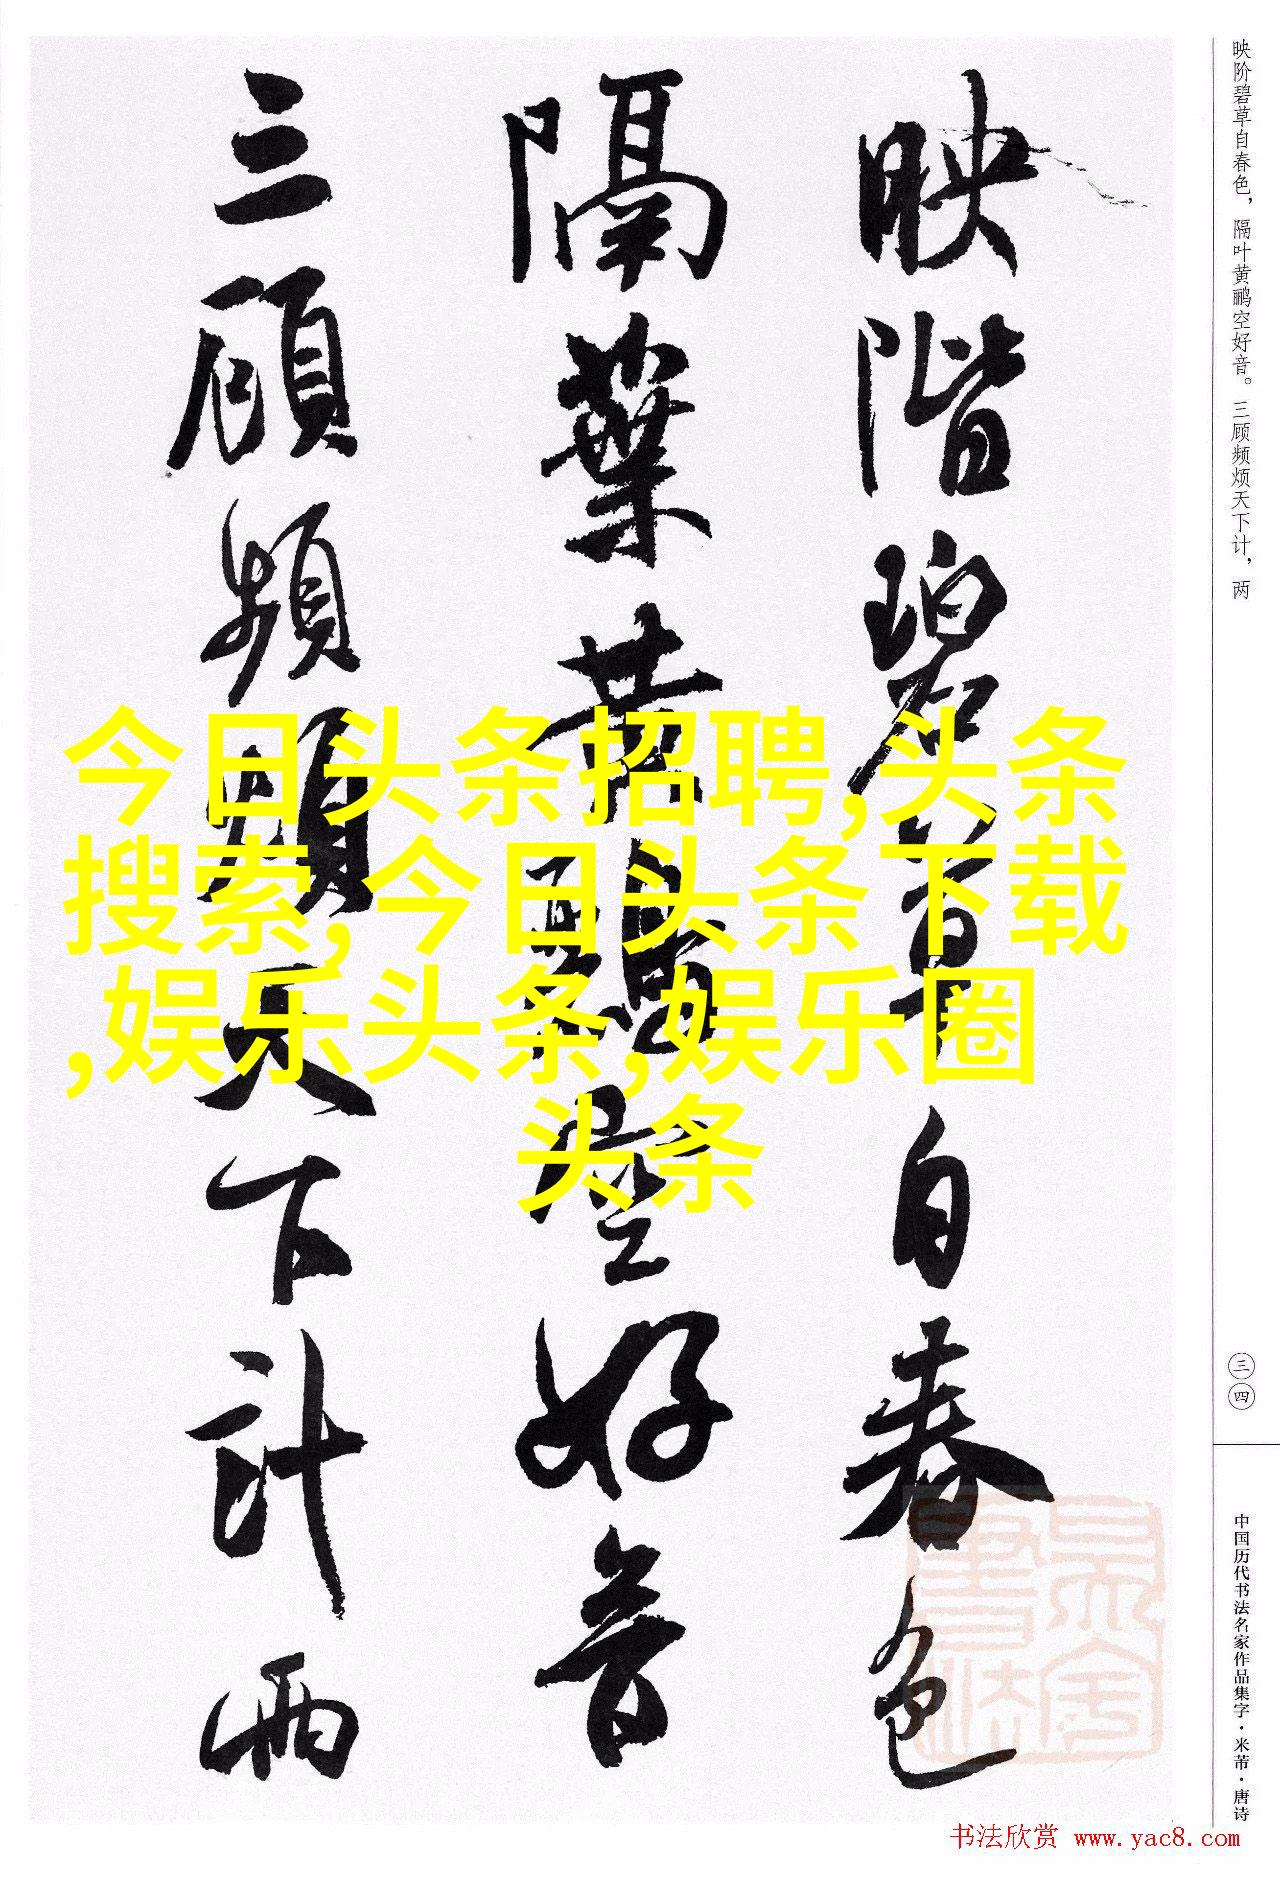 映阶碧草自春色，隔叶黄鹂空好音。三顾频烦天下计，两
映階碧草自春色
隔葉黄鸝空好音
三顧頻煩天下計兩
今日头条招聘,头条
搜索,今日头条下载
,娱乐头条,娱乐圈
头条
三四
中国历代书法名家作品集字·米芾·唐诗
书法欣赏 www.yac8.com